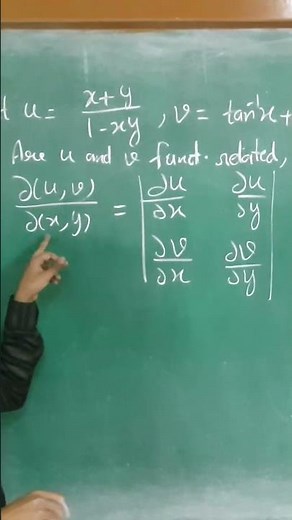 t u = \frac{x+y}{1-xy}, v = tan⁻¹x +
Are u and v funct. related,
\frac{∂(u, v)}{∂(x, y)} = \begin{vmatrix} \frac{∂u}{∂x} & \frac{∂u}{∂y} \\ \frac{∂v}{∂x} & \frac{∂v}{∂y} \end{vmatrix}